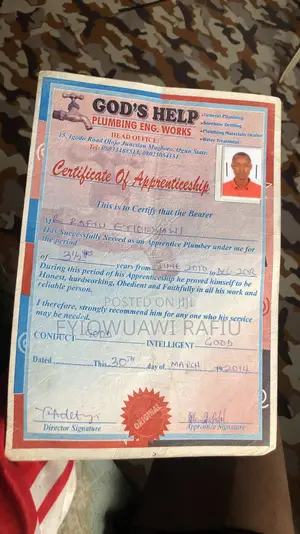 GOD'S HELP
PLUMBING ENG. WORKS
•General Plumbing
•Borehole Drilling
•Plumbing Materials Dealer
•Water Treatment
HEAD OFFICE:
15, Igodo Road Olojo Junction Magboro, Ogun State.
Certificate Of Apprenticeship
This is to Certify that the Bearer
RAFIU EYIOWUAWI
Has Successfully Served as an Apprentice Plumber under me for
the period
of 3½ yrs years from JUNE 2010 to DEC 2013
During this period of his Apprenticeship he proved himself to be
Honest, hardworking, Obedient and Faithfully in all his work and
reliable person.
POSTED ON JIJI
EYIOWUAWI RAFIU
I therefore, strongly recommend him for any one who his service
may be needed.
CONDUCT GOOD INTELLIGENT GOOD
Dated This 30TH day of MARCH 2014
ORIGINAL
Director Signature
Apprentice Signature